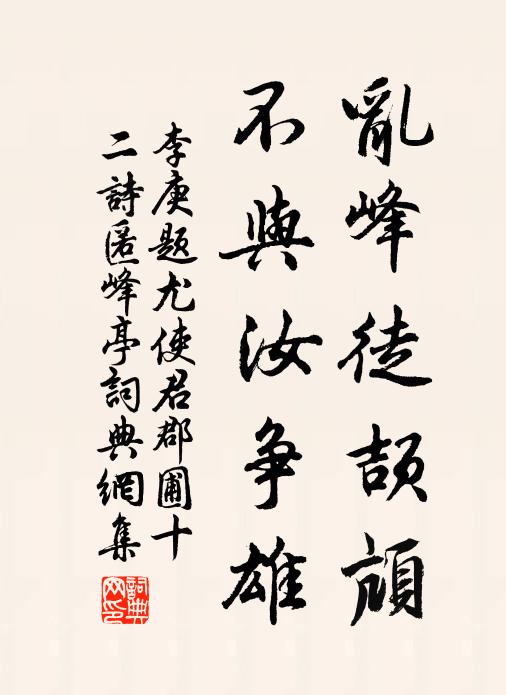 亂峰徒頡頏
不與汝争雄
李庚題尤使君郡圃十
二詩匿峰亭詞典網集
詞典
网印